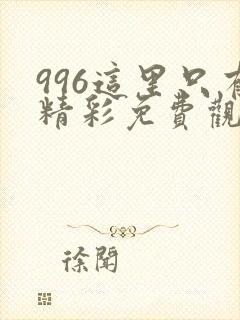 996這里只有
精彩免費觀
徐聞